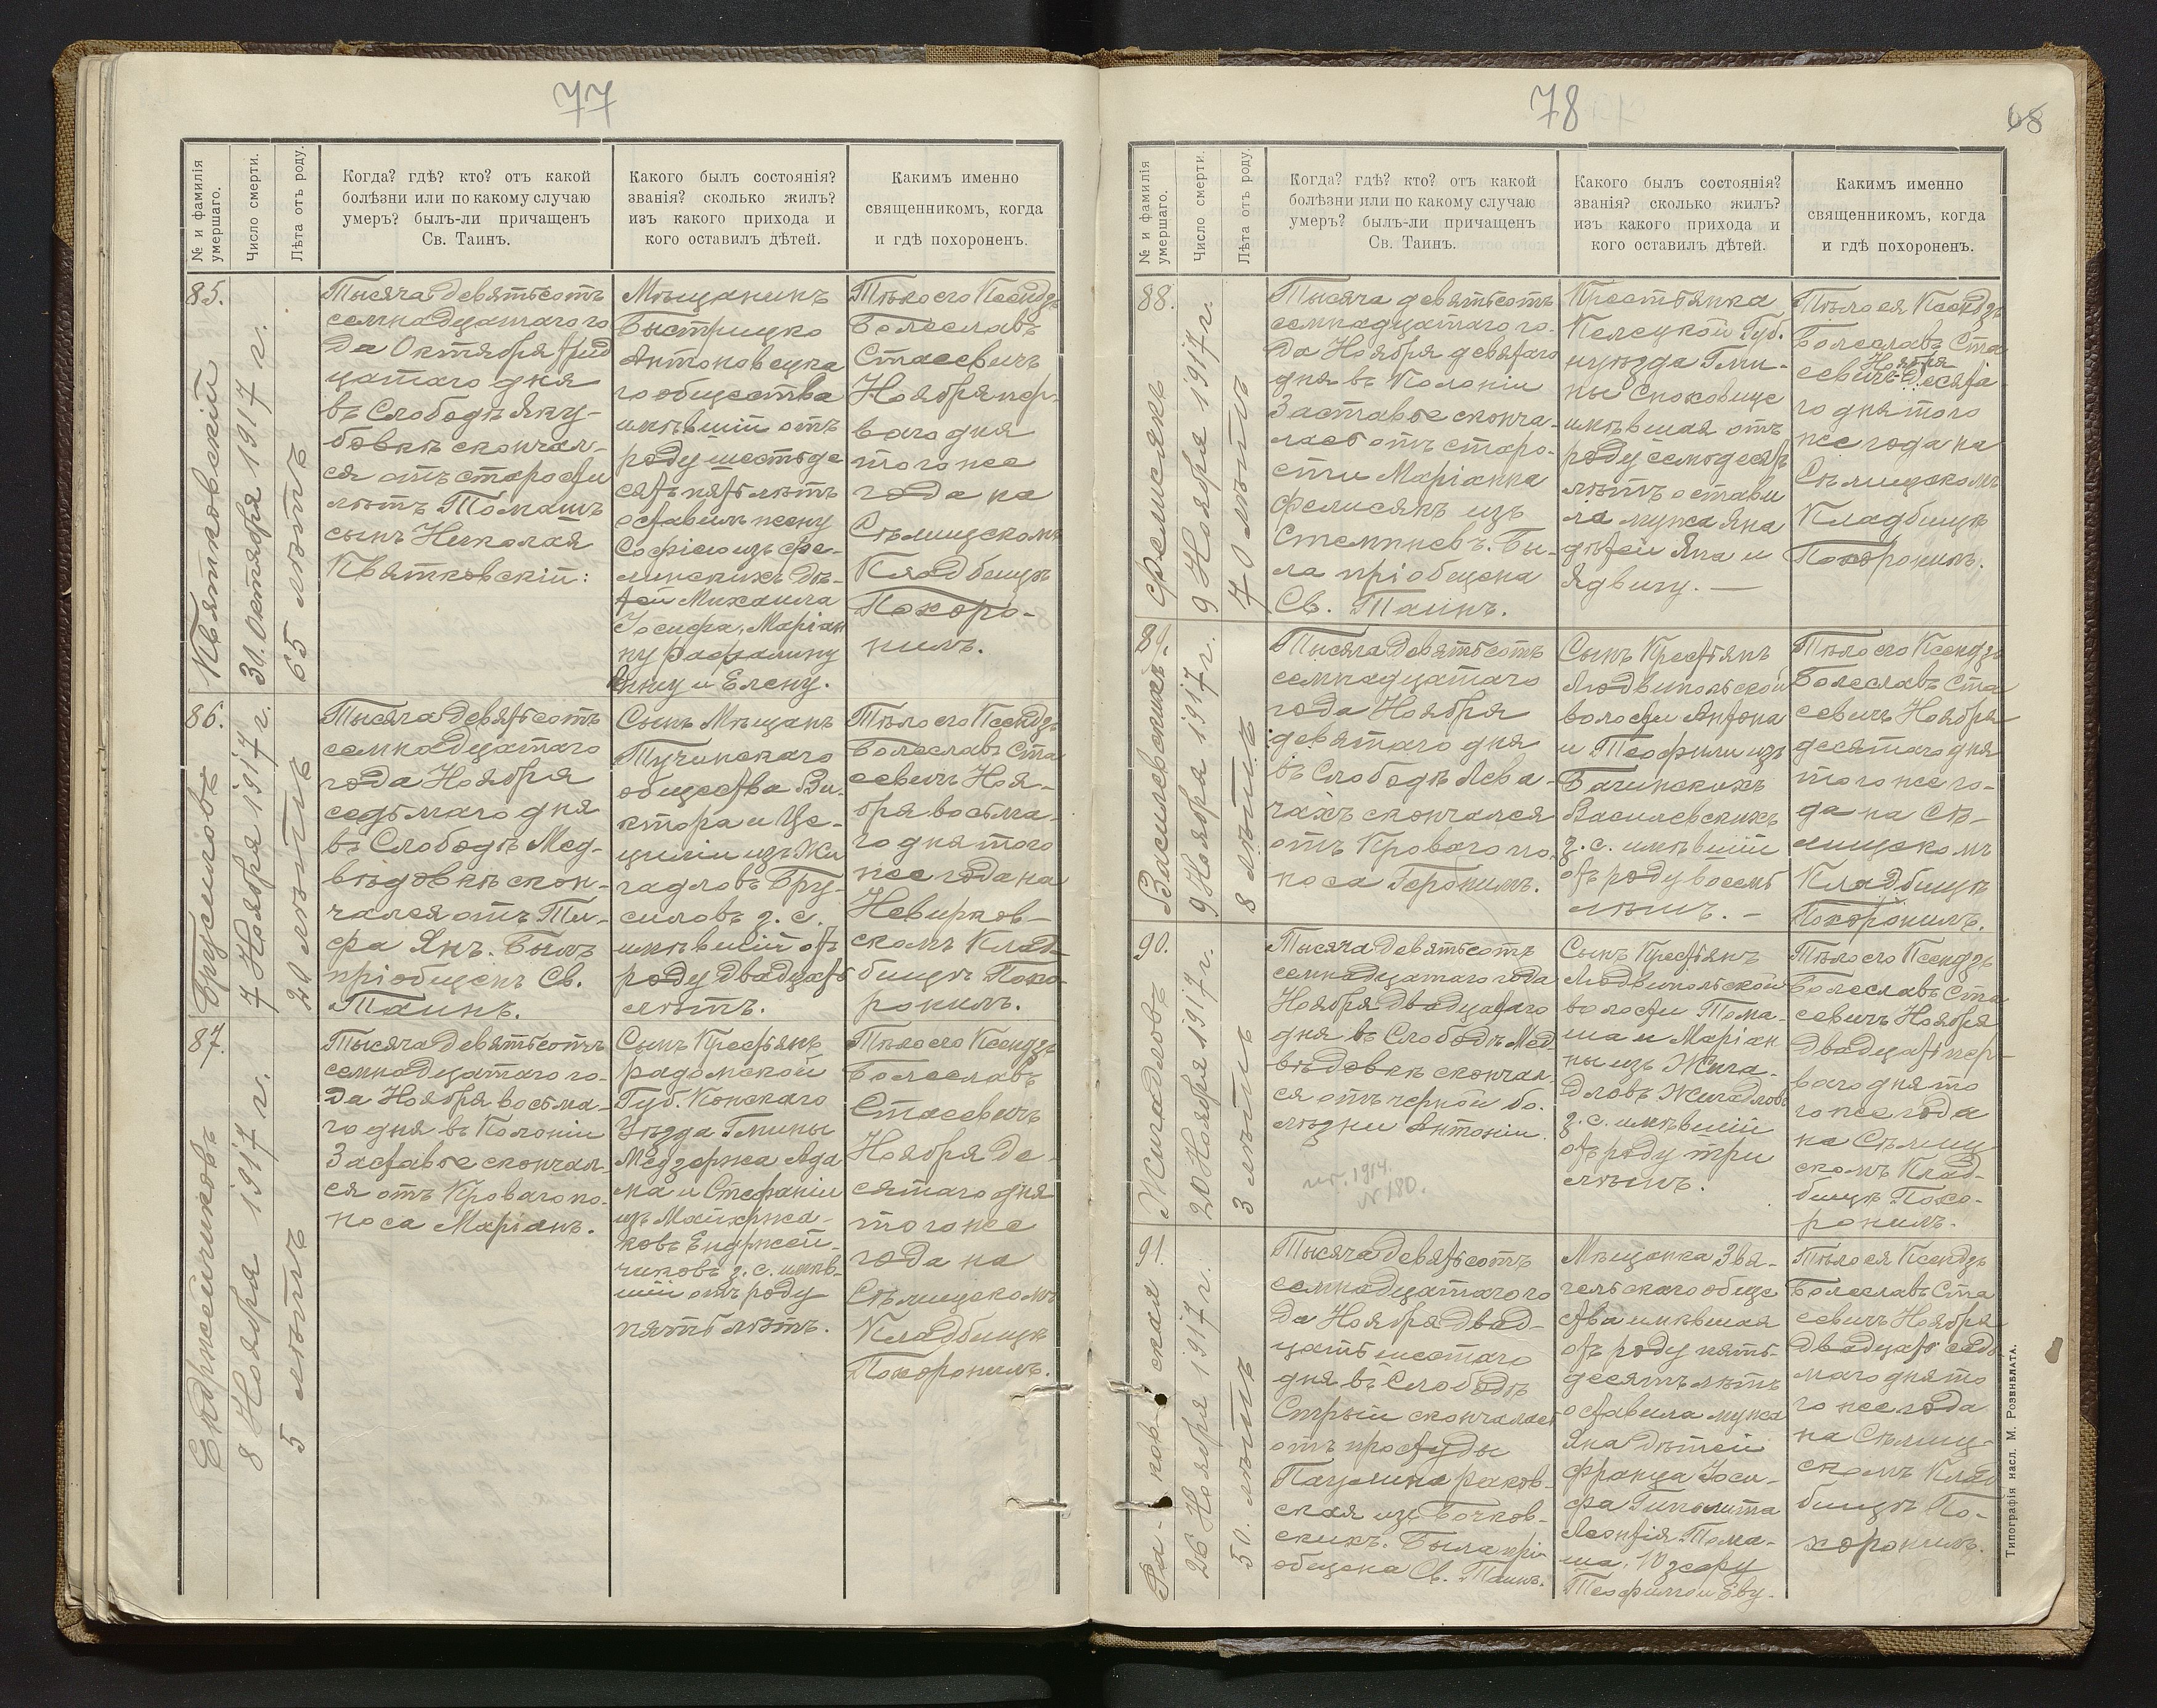 77
№ и фамилія
умершаго.
Число смерти.
Лѣта отъ роду.
Когда? гдѣ? кто? отъ какой
болѣзни или по какому случаю
умеръ? былъ-ли причащенъ
Св. Таинъ.
Какого былъ состоянія?
званія? сколько жилъ?
изъ какого прихода и
кого оставилъ дѣтей.
Какимъ именно
священникомъ, когда
и гдѣ похороненъ.
85.
Квятковскій
30. Октября 1917 г.
65 лѣтъ
Тысяча девятьсотъ
семнадцатаго го
да Октября трид
цатаго дня
въ Слободѣ Яку-
бовкѣ скончал-
ся отъ старости
лѣтъ Томашъ
сынъ Николая
Квятковскій:
Мѣщанинъ
Быстрицко
Антоновецка
го общества
имѣвшій отъ
роду шестьде
сятъ пять лѣтъ
оставилъ жену
Софію изъ Фе-
линскихъ дѣ-
тей Михаила
Іосифа, Маріан
ну Рафалину
Анну и Елену.
Тѣло его Ксендзъ
Болеславъ
Стасевичъ
Ноября пер-
ваго дня
того же
года на
Сѣлищскомъ
Кладбищѣ
Похоро-
нилъ.
86.
Брусиловъ
7 Ноября 1917 г.
20 лѣтъ
Тысяча девятьсотъ
семнадцатаго
года Ноября
седьмаго дня
въ Слободѣ Мед-
вѣдовкѣ скон-
чался отъ Ти-
фа Янъ. Былъ
пріобщенъ Св.
Таинъ.
Сынъ Мѣщанъ
Тучинскаго
общества Ви-
ктора и Це-
циліи изъ Жи
гадловъ Бру-
силовъ з. с.
имѣвшій отъ
роду двадцать
лѣтъ.
Тѣло его Ксендзъ
Болеславъ Ста
севичъ Ноя-
бря восьма-
го дня того
же года на
Невирков-
скомъ Клад-
бищѣ Похо-
ронилъ.
87.
Енджейчиковъ
8 Ноября 1917 г.
5 лѣтъ
Тысяча девятьсотъ
семнадцатаго го-
да Ноября восьма-
го дня въ Колоніи
Заставье скончал-
ся отъ Кроваго по-
носа Маріанъ.
Сынъ Крестьянъ
Радомской
Губ. Конскаго
Уѣзда Гмины
Медзержа Ада
ма и Стефаніи
изъ Майхржа-
ковъ Енджей-
чиковъ з. с. имѣв-
шій отъ роду
пять лѣтъ.
Тѣло его Ксендзъ
Болеславъ
Стасевичъ
Ноября де-
сятаго дня
того же
года на
Сѣлищскомъ
Кладбищѣ
Похоронилъ.
78
68
№ и фамилія
умершаго.
Число смерти.
Лѣта отъ роду.
Когда? гдѣ? кто? отъ какой
болѣзни или по какому случаю
умеръ? былъ-ли причащенъ
Св. Таинъ.
Какого былъ состоянія?
званія? сколько жилъ?
изъ какого прихода и
кого оставилъ дѣтей.
Какимъ именно
священникомъ, когда
и гдѣ похороненъ.
88.
Фелисякъ
9 Ноября 1917 г.
70 лѣтъ
Тысяча девятьсотъ
семнадцатаго го-
да Ноября девятаго
дня въ Колоніи
Заставье сконча-
лась отъ старо-
сти Маріанна
Фелисякъ изъ
Стемпневъ. Бы-
ла пріобщена
Св. Таинъ.
Крестьянка
Келецкой Губ.
и уѣзда Гми-
ны Сноховице
имѣвшая отъ
роду семьдесятъ
лѣтъ остави
ла мужа Яна
дѣтей Яна и
Ядвигу. —
Тѣло ея Ксендзъ
Болеславъ Ста
Ноября
севичъ Десята-
го дня того
же года на
Сѣлищскомъ
Кладбищѣ
Похоронилъ.
89.
Василевскихъ.
9 Ноября 1917 г.
8 лѣтъ
Тысяча девятьсотъ
семнадцатаго
года Ноября
девятаго дня
въ Слободѣ Лева-
чахъ скончался
отъ Кроваго по-
носа Геронимъ.
Сынъ Крестьянъ
Людвипольской
волости Антона
и Теофили изъ
Бачинскихъ
Василевскихъ
з. с. имѣвшій
отъ роду восемь
лѣтъ. —
Тѣло его Ксендзъ
Болеславъ Ста
севичъ Ноября
десятаго дня
того же го-
да на Сѣ-
лищскомъ
Кладбищѣ
Похоронилъ.
90.
Жигадловъ
20 Ноября 1917 г.
3 лѣтъ
Тысяча девятьсотъ
семнадцатаго года
Ноября двадцатаго
дня въ Слободѣ Мед-
вѣдовкѣ скончал-
ся отъ черной бо-
лѣзни Антоній.
1914.
N 180.
Сынъ Крестьянъ
Людвипольской
волости Тома-
ша и Маріан
ны изъ Жига-
дловъ Жигадловъ
з. с. имѣвшій
отъ роду три
лѣтъ.
Тѣло его Ксендзъ
Болеславъ Ста
севичъ Ноября
двадцать пер-
ваго дня то
го же года
на Сѣлищ
скомъ Клад-
бищѣ Похо-
ронилъ.
91
Ра-ков-ская
26 Ноября 1917 г.
50. лѣтъ
Тысяча девятьсотъ
семнадцатаго го
да Ноября двад-
цать шестаго
дня въ Слободѣ
Стрый скончалась
отъ простуды
Пацелина Раков-
ская изъ Бочков-
скихъ. Была прі-
общена Св. Таинъ.
Мѣщанка Звя-
гельскаго обще
ства имѣвшая
отъ роду пять-
десятъ лѣтъ
оставила мужа
Яна дѣтей
Франца Іоси-
фа Гиполита
Леонтія Тома-
ша, Юзефу
Теофилю и Еву.
Тѣло ея Ксендзъ
Болеславъ Ста
севичъ Ноября
двадцать седь
маго дня то
го же года
на Сѣлищ-
скомъ Клад
бищѣ По-
хоронилъ.
Типографія насл. М. Розенблата.